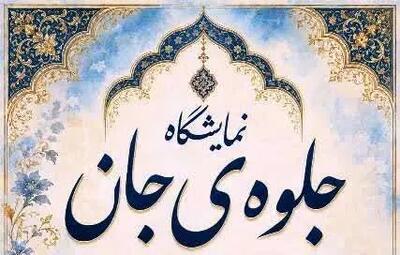 نمایشگاه
جلوه‌ی جان